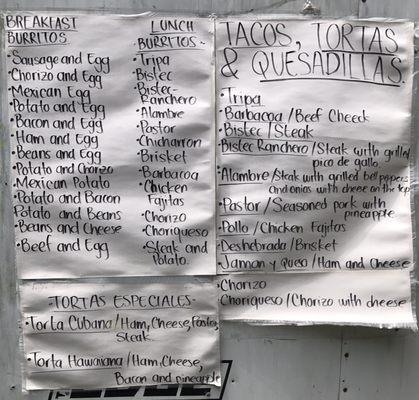 BREAKFAST
BURRITOS
• Sausage and Egg
• Chorizo and Egg
• Mexican Egg
• Potato and Egg
• Bacon and Egg
• Ham and Egg
• Beans and Egg
• Potato and Chorizo
• Mexican Potato
• Potato and Bacon
• Potato and Beans
• Beans and Cheese
• Beef and Egg
LUNCH
BURRITOS
• Tripa
• Bistec
• Bistec-
Ranchero
• Alambre
• Pastor
• Chicharron
• Brisket
• Barbacoa
• Chicken
Fajitas
• Chorizo
• Choriqueso
• Steak and
Potato.
TACOS, TORTAS
& QUESADILLAS.
• Tripa
• Barbacoa/Beef Cheek
• Bistec/Steak
• Bistec Ranchero/Steak with grilled
pico de gallo
• Alambre/Steak with grilled bell peppers
and onions with cheese on the top
• Pastor/Seasoned pork with
pineapple
• Pollo/Chicken Fajitas
• Deshebrado/Brisket
• Jamon y Queso/Ham and Cheese
• Chorizo
• Choriqueso/Chorizo with cheese
-TORTAS ESPECIALES-
• Torta Cubana/Ham, Cheese, Pastor,
Steak
• Torta Hawaiana/Ham, Cheese,
Bacon and pineapple